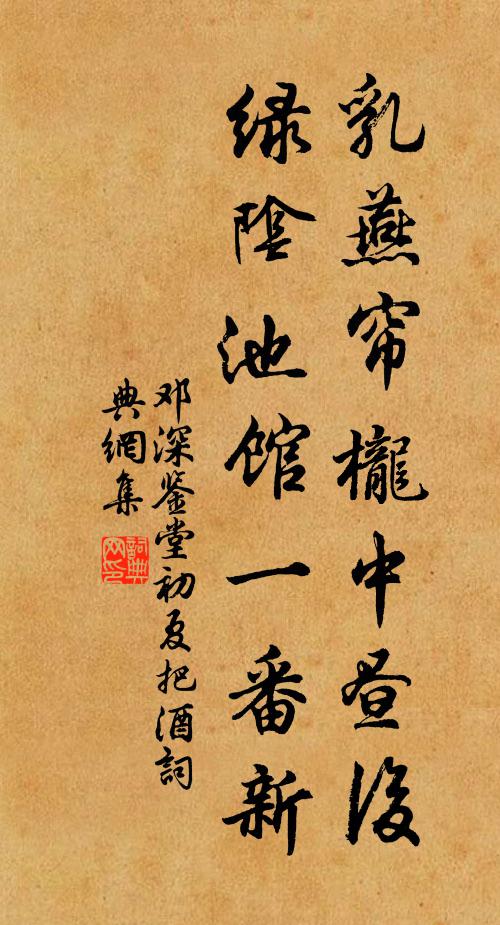 乳燕帘櫳中昼後
绿陰池馆一番新
邓深鉴堂初夏把酒詞
典網集
詞典
网印